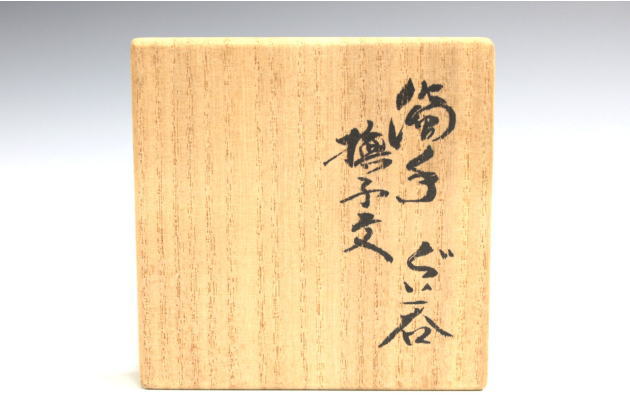 錦手 ぐい呑
撫子文